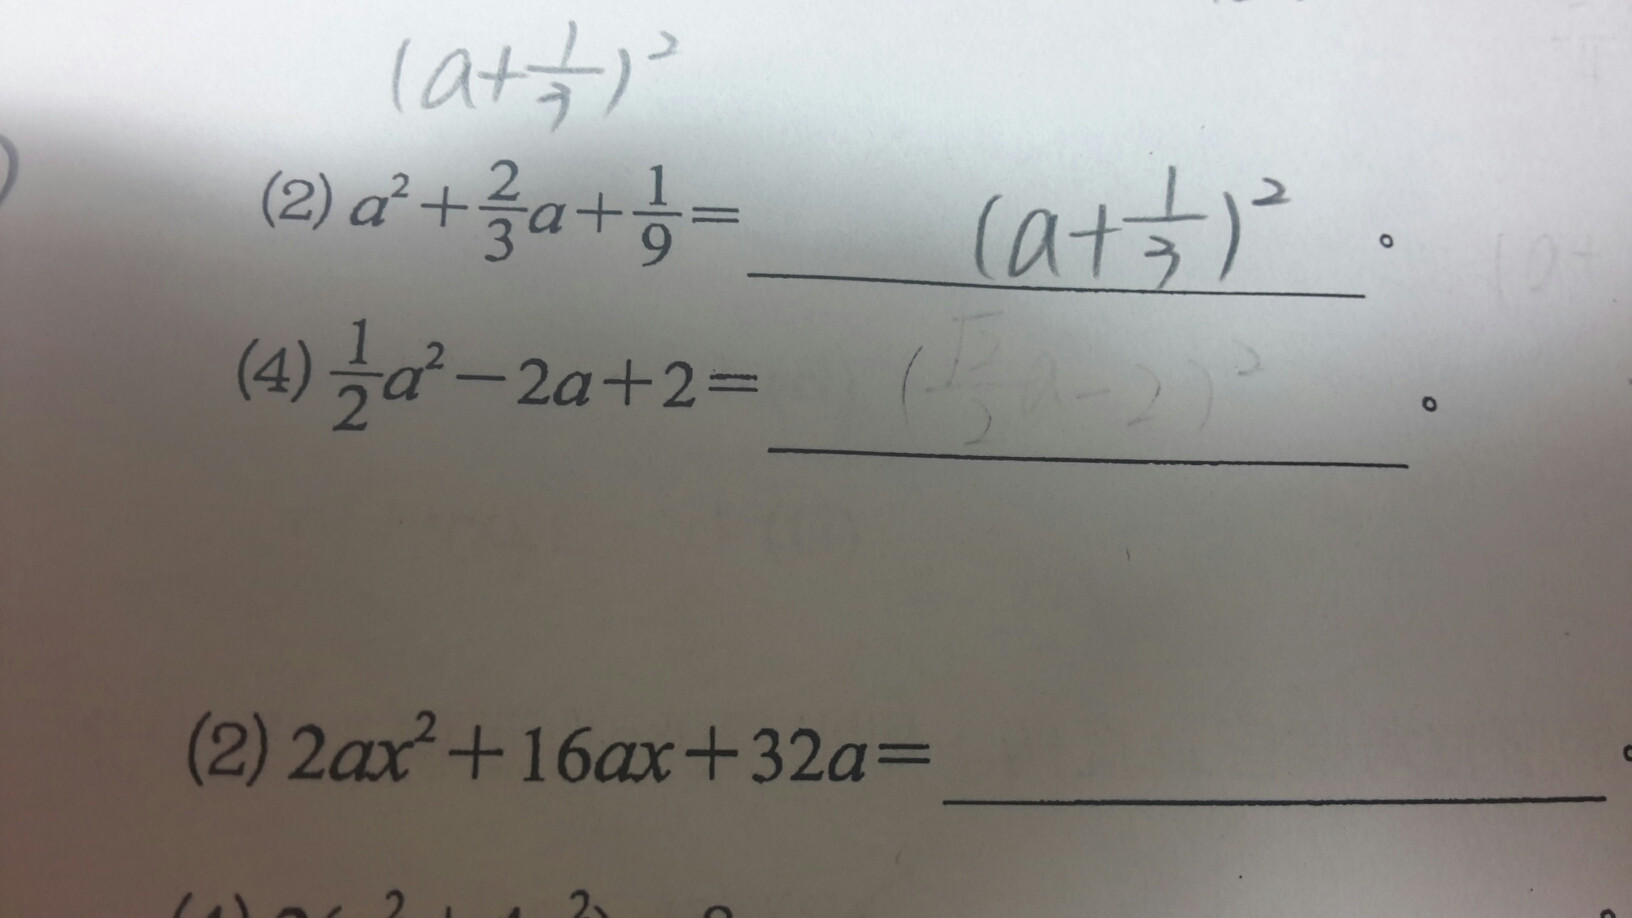 (a+1/3)²
(2) a²+2/3a+1/9= (a+1/3)² 。
(4) 1/2a²−2a+2= (√2/2a−2)² 。
(2) 2ax²+16ax+32a= 。